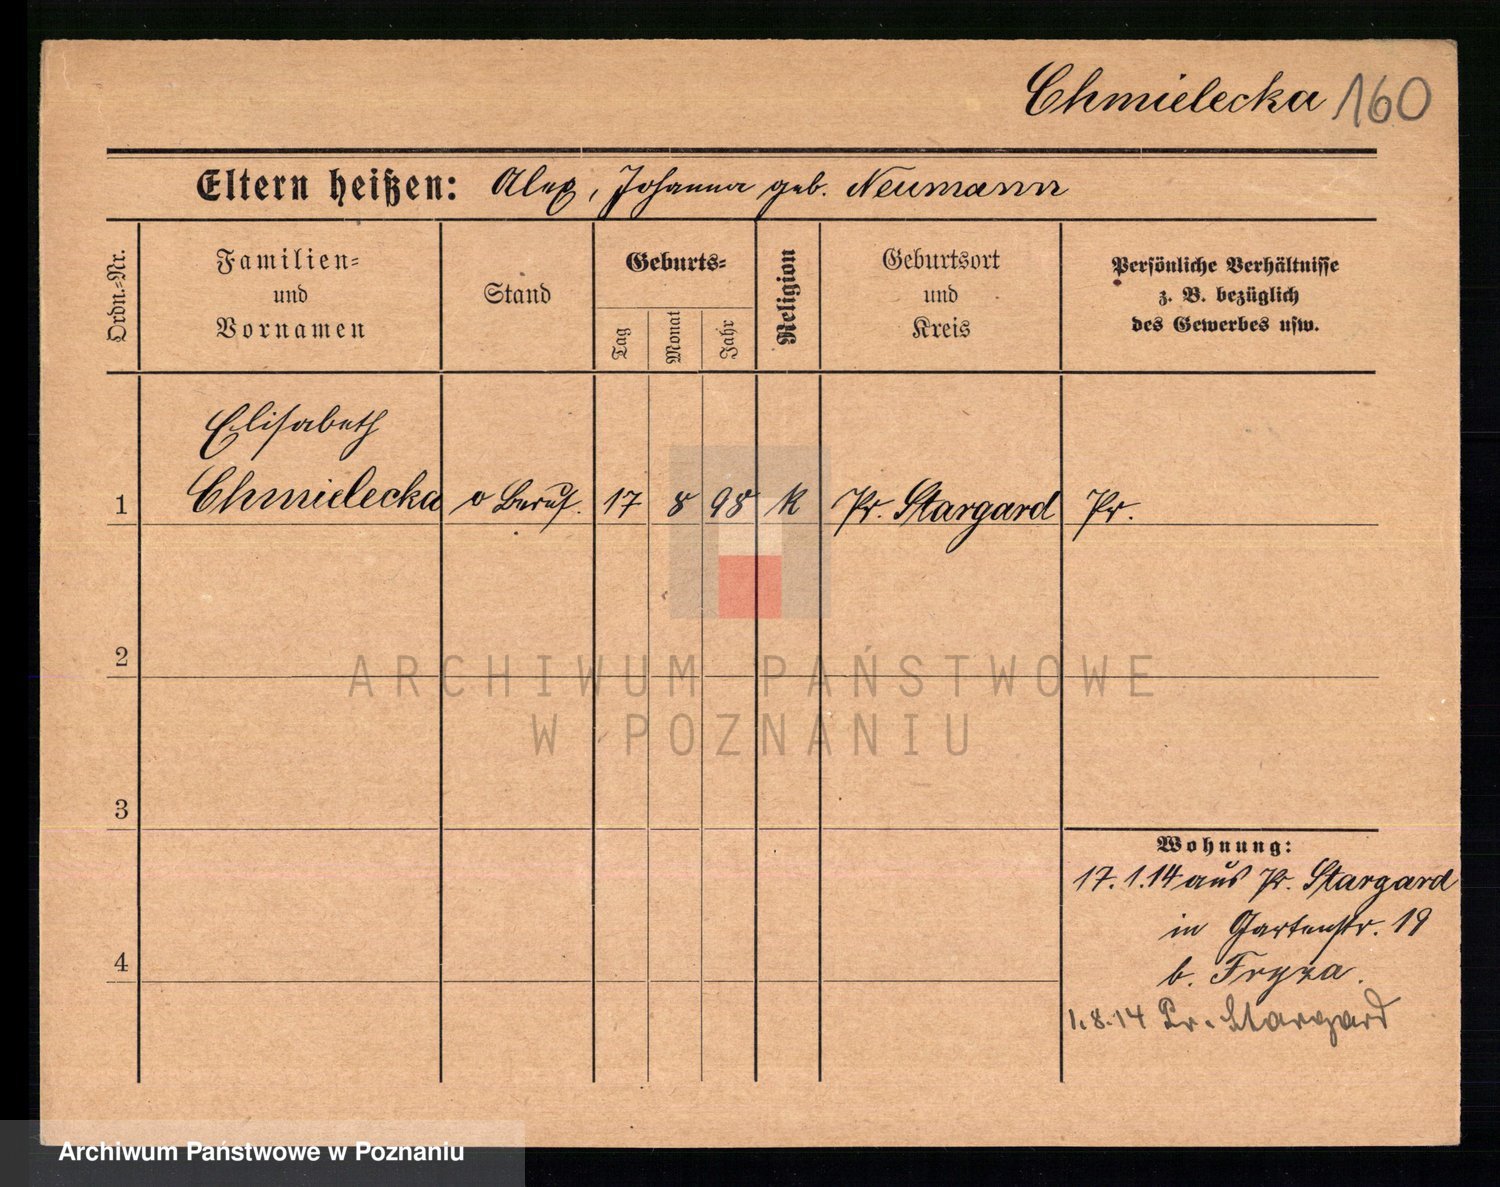 Chmielecka 160
Eltern heißen: Alex, Johanna geb. Neumann
Ordn.-Nr.
Familien-
und
Vornamen
Stand
Geburts-
Tag
Monat
Jahr
Religion
Geburtsort
und
Kreis
Persönliche Verhältnisse
z. B. bezüglich
des Gewerbes usw.
Elisabeth
1 Chmielecka o Beruf. 17 8 98 k Pr. Stargard Pr.
2
ARCHIWUM PAŃSTWOWE
W POZNANIU
3
Wohnung:
17.1.14 aus Pr. Stargard
in Gartenstr. 19
4
b. Fryza.
1.8.14 Pr. Stargard
Archiwum Państwowe w Poznaniu